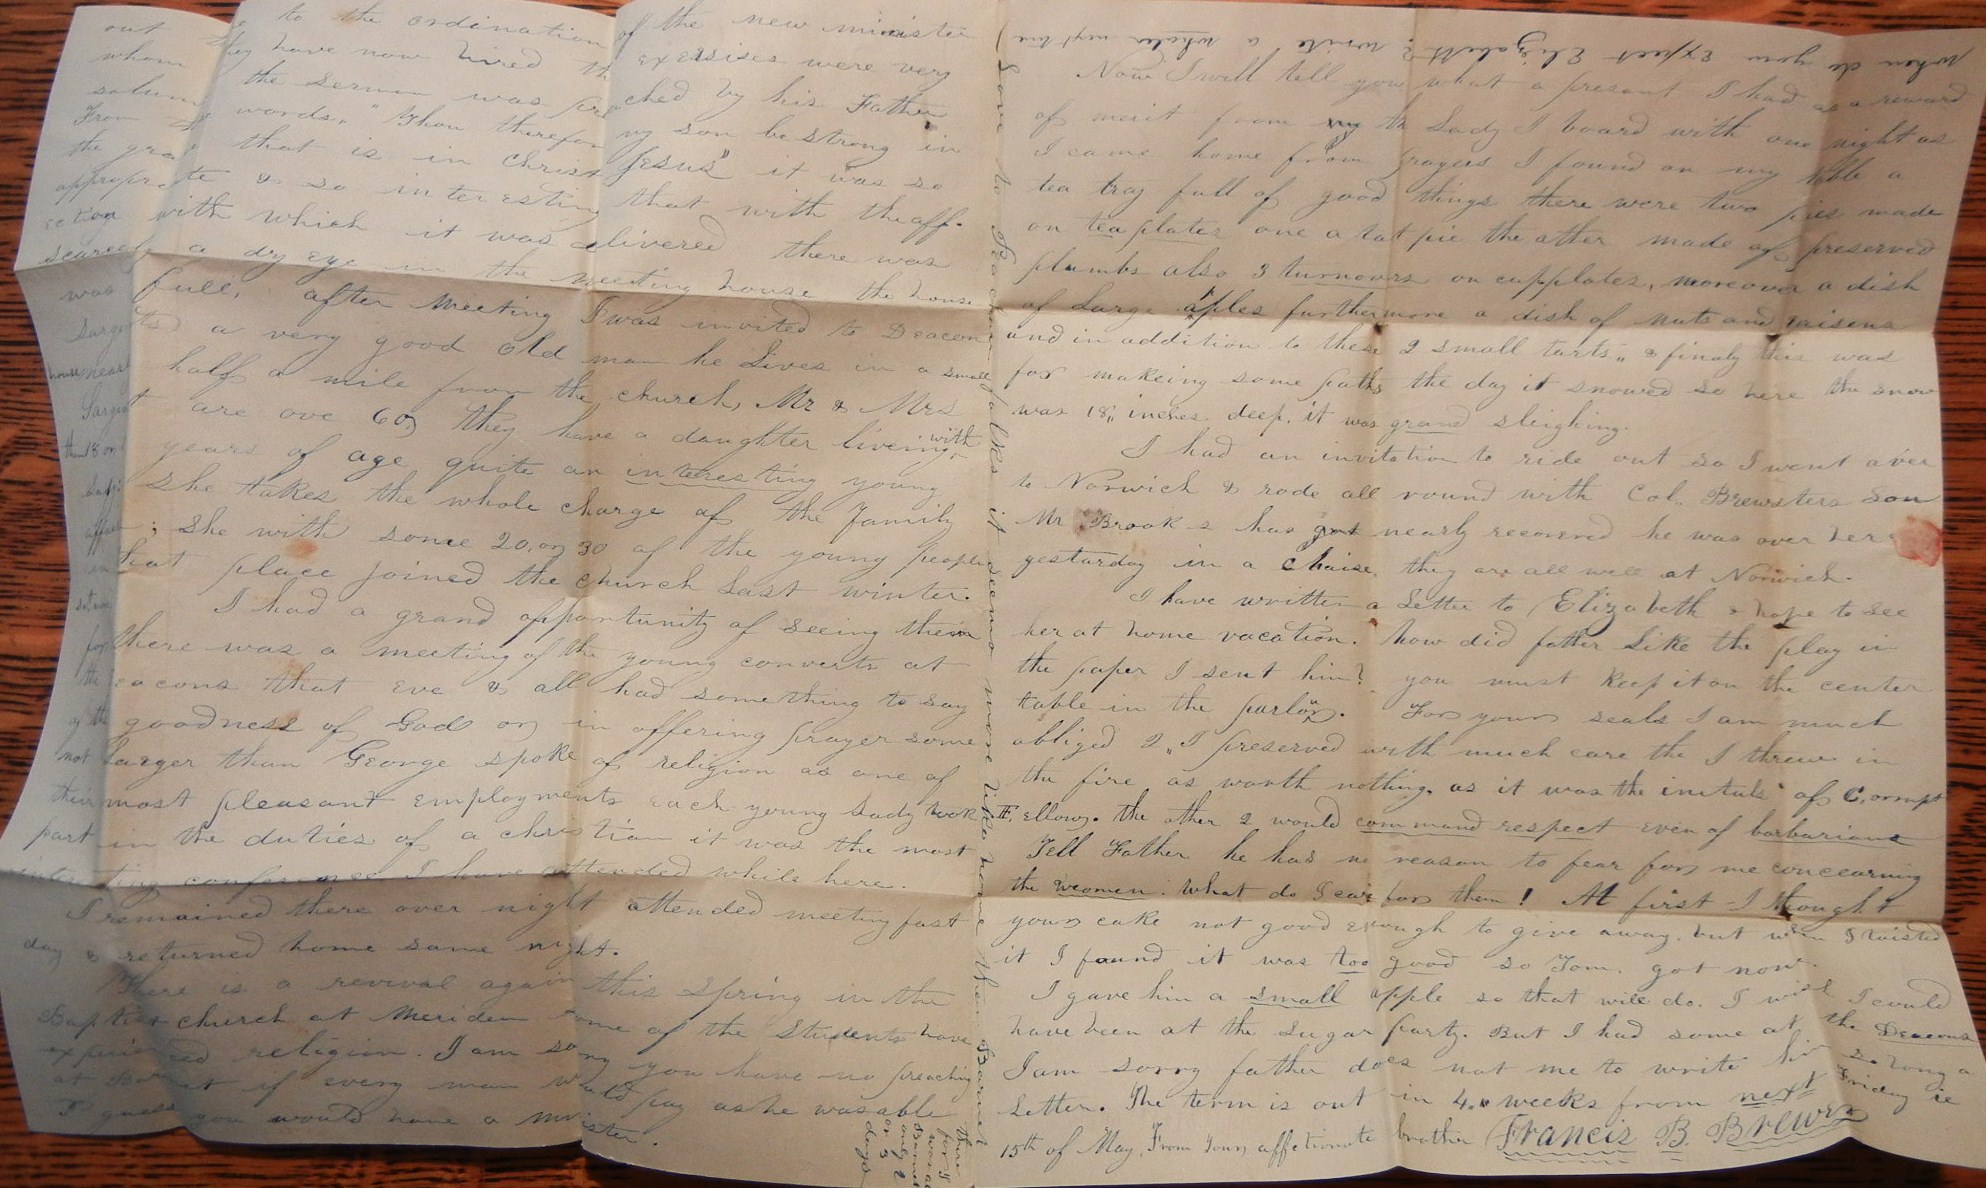 out to the ordination of the new minister
whom they have now hired the exersises were very
solumn the sermon was preached by his Father
From the words, "Thou therefor my son be strong in
the grace that is in Christ Jesus" it was so
appropriate & so interesting that with the aff-
ection with which it was delivered there was
scarcely a dry eye in the meeting house the house
was full, after meeting I was invited to Deacon
Sargents a very good old man he lives in a small
house near half a mile from the church, Mr & Mrs
Sargent are ove 60, they have a daughter living with
them 18 or years of age quite an interesting young
she takes the whole charge of the family
; she with some 20, or 30 of the young people
in that place joined the church last winter.
I had a grand opportunity of seeing them
for there was a meeting of the young converts at
the Deacons that eve & all had something to say
of the goodness of God or in offering prayer some
not larger than George spoke of religion as one of
their most pleasant employments each young lady took
part in the duties of a christian it was the most
interesting conference I have attended while here.
I remained there over night attended meeting fast
day & returned home same night.
There is a revival again this Spring in the
Baptist church at Meriden some of the students have
experienced religion. I am sorry you have no preaching
at if every man would pay as he was able
I guess you would have a minister.
when do you expect Elizabeth? write a whole next time
Now I will tell you what a present I had as a reward
of merit from the Lady I board with one night as
I came home from prayers I found on my table a
tea tray full of good things there were two pies made
on tea plates one a tat pie the other made of preserved
plumbs also 3 turnovers on cupplates, moreover a dish
of Large aples furthermore a dish of nuts and raisens
and in addition to these 2 small tarts,, & finaly this was
for makeing some paths the day it snowed so here the snow
was 18,, inches deep, it was grand sleighing.
I had an invitation to ride out so I went over
to Norwich & rode all round with Col. Brewsters Son
Mr Brooks has got nearly recovered he was over here
yestarday in a Chaise, they are all well at Norwich.
I have written a Letter to Elizabeth & hope to see
her at home vacation. how did father like the play in
the paper I sent him? you must keep it on the center
table in the parlor. For your seals I am much
obliged 2,, I preserved with much care the 1 threw in
the fire as worth nothing. as it was the initals of C,orrupt
F,ellow. the other 2 would command respect even of barbarians
Tell Father he has no reason to fear for me concearning
the women. What do I care for them! At first I thought
your cake not good enough to give away. but when I taisted
it I found it was too good so Tom. got none.
I gave him a small apple so that will do. I wish I could
have been at the sugar party. But I had some at the Deacons
I am sorry father does not me to write him so long a
Letter. The term is out in 4,, weeks from next Friday ie
15th of May. From Your affetionate brother Francis B. Brewer
Love to Deacon folks it seems more like home than Barnet
there
for I
was at
Barnet
only 2
or 3
days